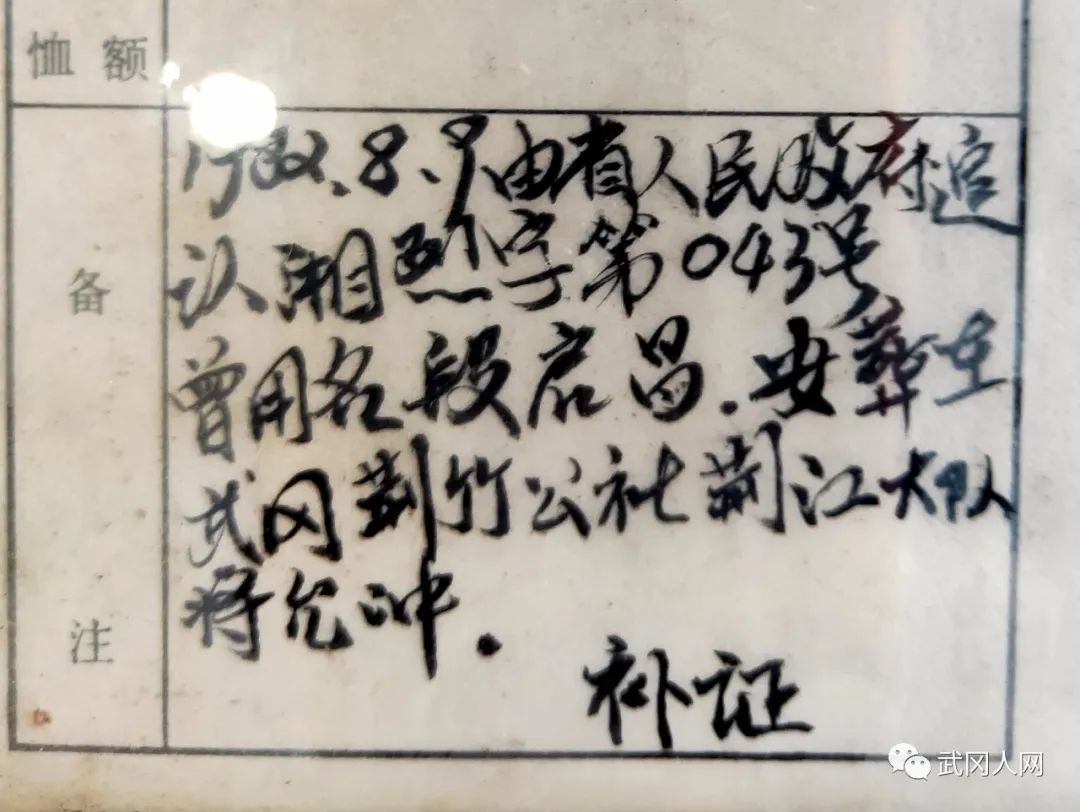 恤额
备注
1982.8.9由省人民政府追
认湘烈字第043号
曾用名段启昌.安葬在
武冈荆竹公社荆江大队
将允冲.
补证
武冈人网